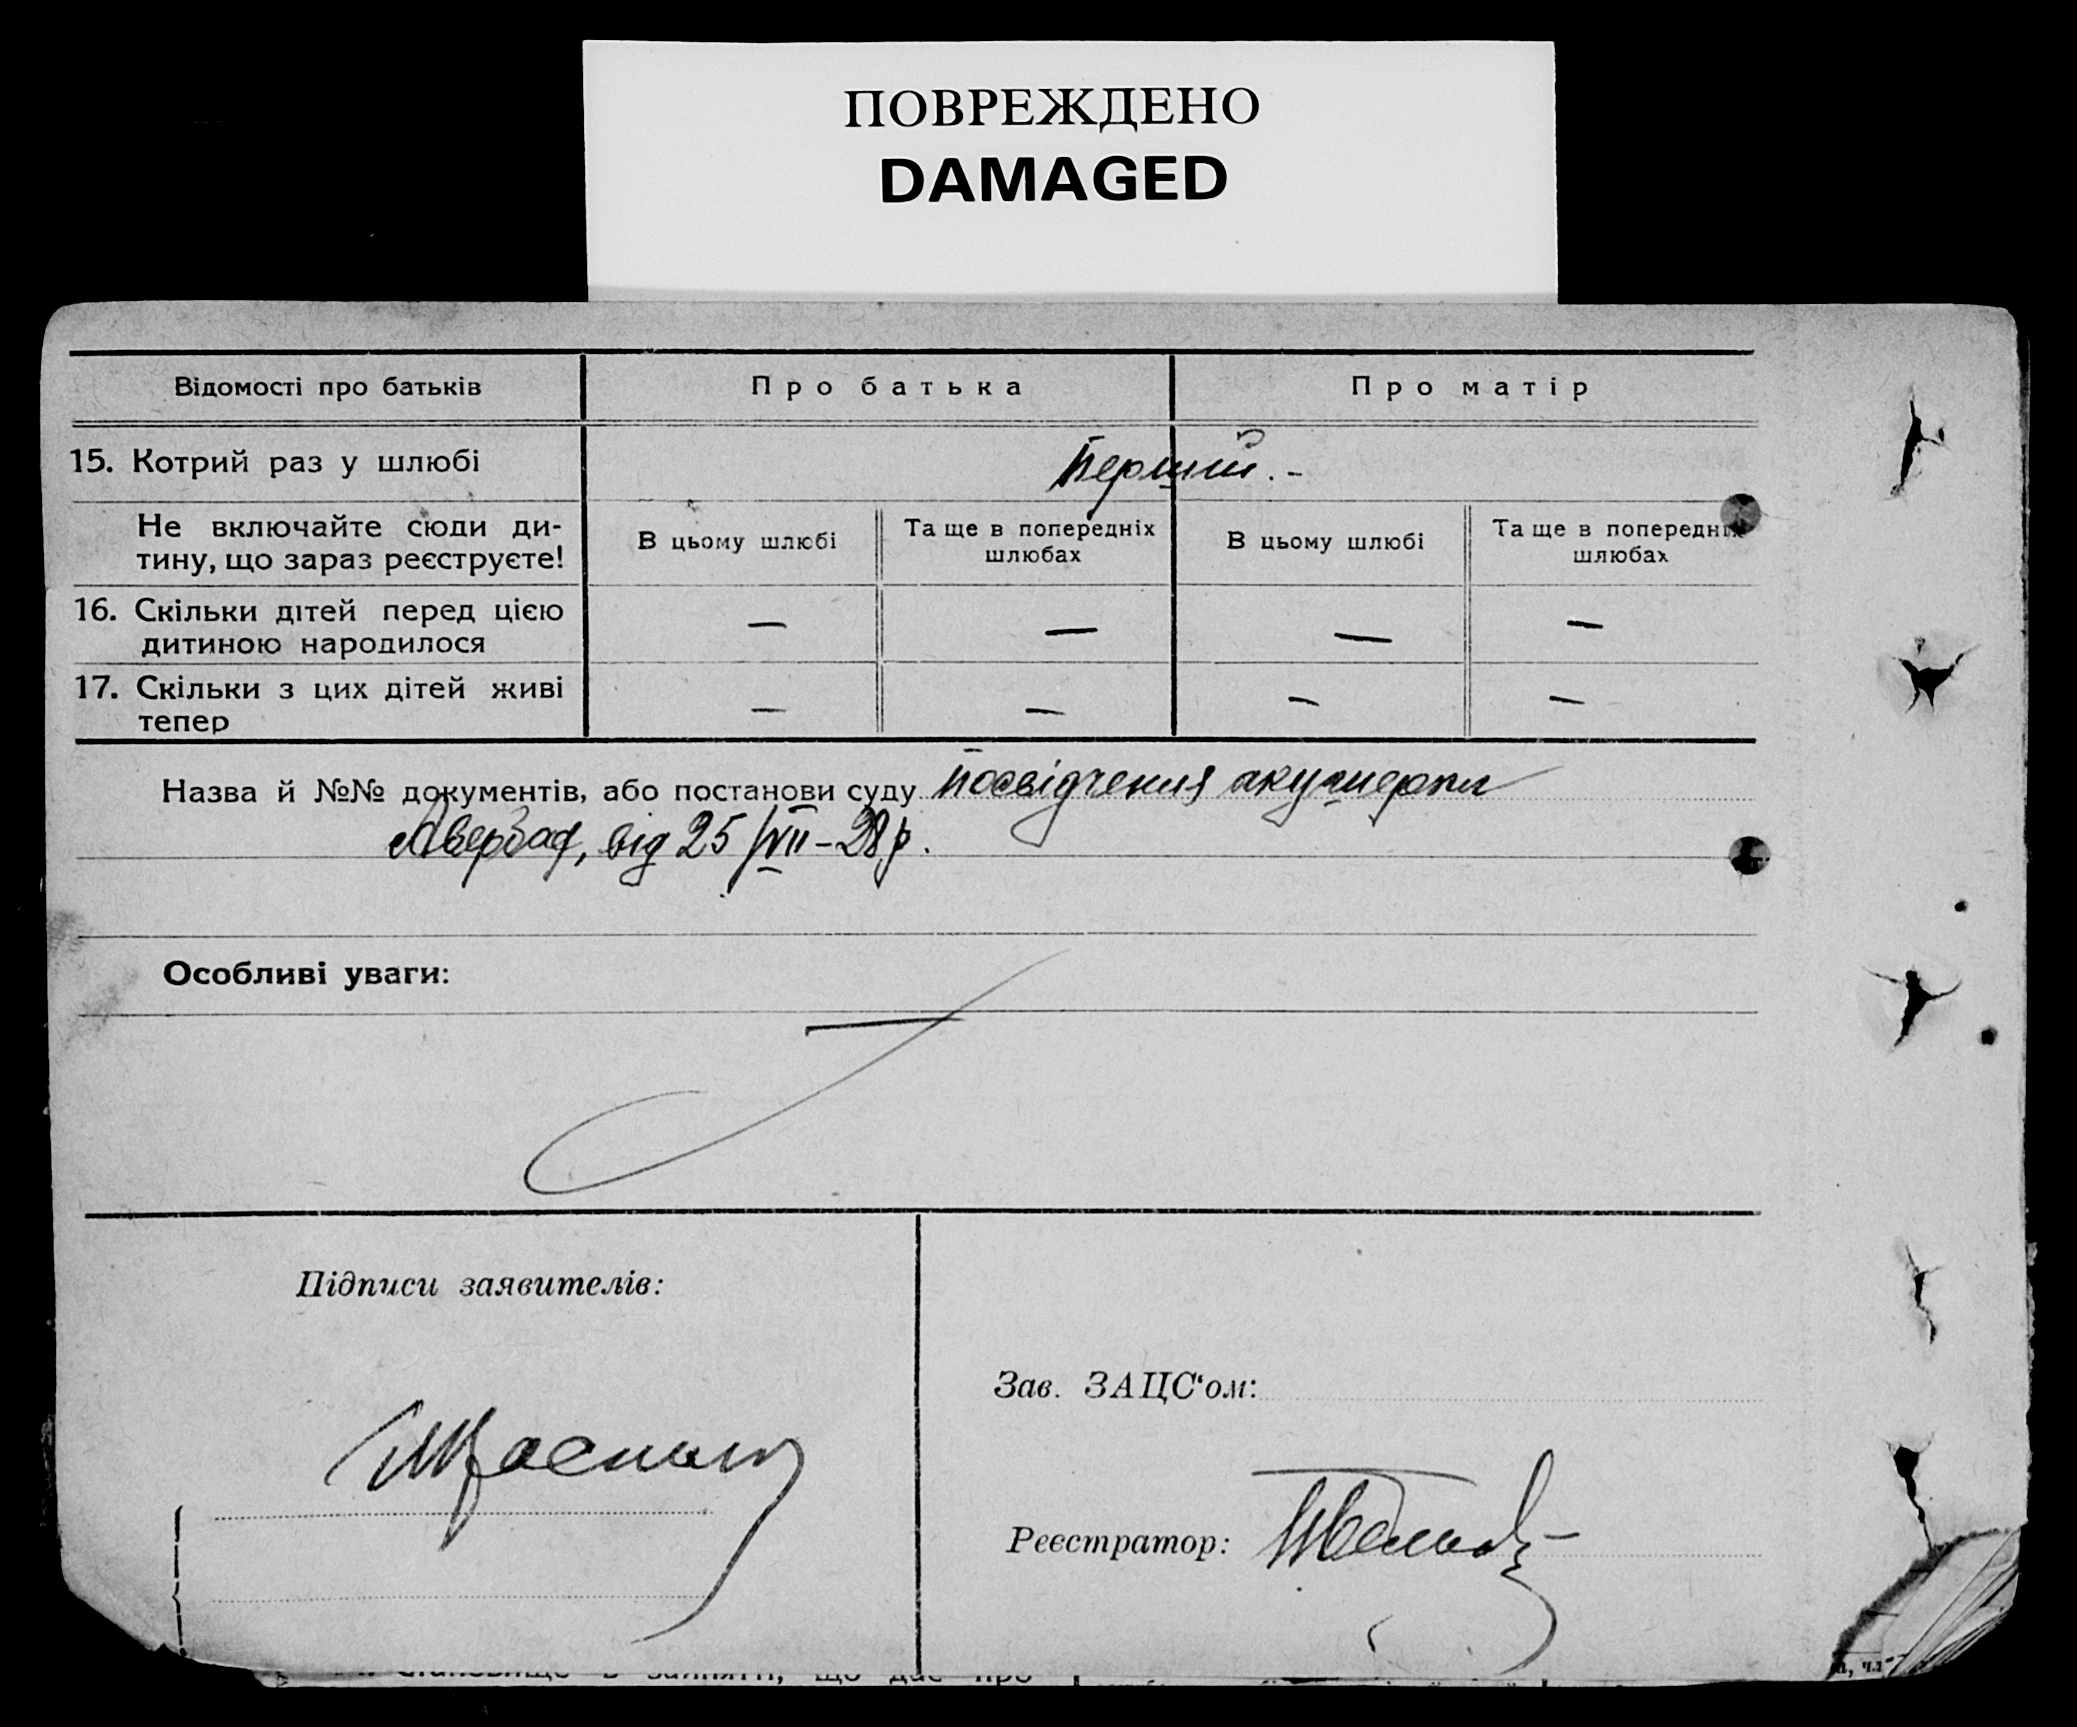 ПОВРЕЖДЕНО
DAMAGED
Відомості про батьків
Про батька
Про матір
15. Котрий раз у шлюбі
Перший. -
Не включайте сюди ди-
тину, що зараз реєструєте!
В цьому шлюбі
Та ще в попередніх
шлюбах
В цьому шлюбі
Та ще в попередніх
шлюбах
16. Скільки дітей перед цією
дитиною народилося
— — — —
17. Скільки з цих дітей живі
тепер
— — — —
Назва й №№ документів, або постанови суду посвідчення акушерки
Авербах, від 25/VII – 28 р.
Особливі уваги:
—
Підписи заявителів:
Зав. ЗАЦС'ом:
Реєстратор:
становище в занятті, що дає про